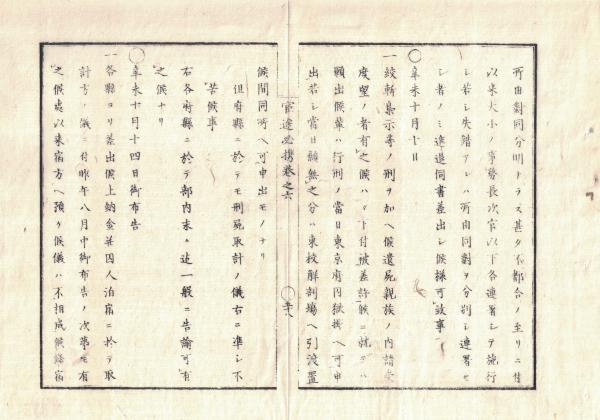 所由對同分明トラス甚タ不都合ノ至リニ付
以来大小ノ事務長次官以下各連署シテ施行
シ若シ失錯アレハ所由同對ヲ分別シ連署セ
シ者ノミ進退伺書差出シ候様可致事
〇辛未十月十日
一絞斬梟示等ノ刑ヲ加ヘ候遺屍親族ノ内請
度望ノ者有之候ハヽ下付被差許候ニ就テハ
願出候輩ハ行刑ノ當日東京府内獄掛ヘ可申
出若シ當日願無之分ハ東校解剖場ヘ引渡置
官途必携巻之六
候間同所ヘ可申出モノナリ
但府縣ニ於テモ刑屍取計ノ儀右ニ準シ不
苦候事
右各府縣ニ於テ部内末々迠一般ニ告諭可有
之候ナリ
〇辛未十月十四日御布告
一各縣ヨリ差出候上納金並囚人泊宿ニ於テ取
計方ノ儀ニ付昨年八月中御布告ノ次第モ有
之候處以来宿方ヘ預ケ候儀ハ不相成候條宿